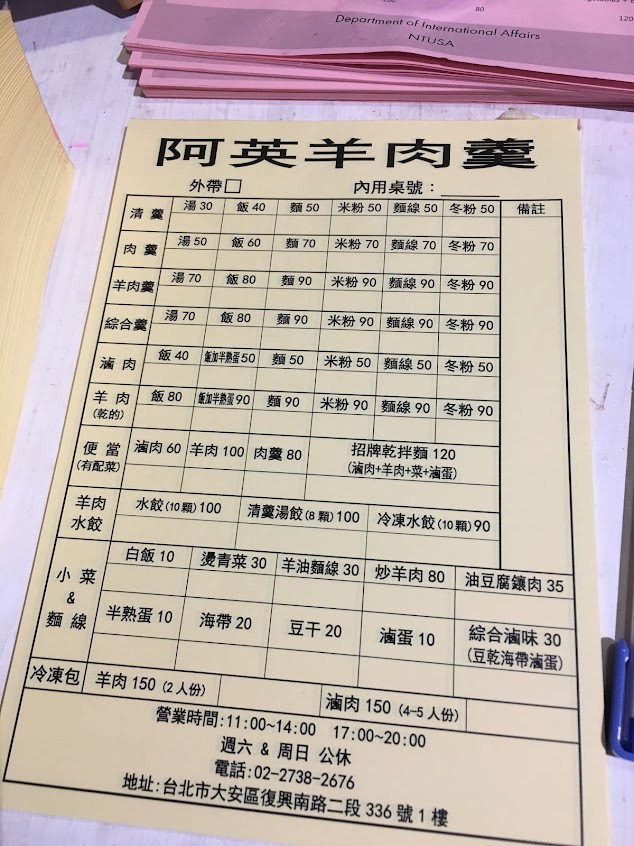 Department of International Affairs
NTUSA
80
120
阿英羊肉羹
外帶□ 內用桌號：______
清羹 湯30 飯40 麵50 米粉50 麵線50 冬粉50 備註
肉羹 湯50 飯60 麵70 米粉70 麵線70 冬粉70
羊肉羹 湯70 飯80 麵90 米粉90 麵線90 冬粉90
綜合羹 湯70 飯80 麵90 米粉90 麵線90 冬粉90
滷肉 飯40 飯加半熟蛋50 麵50 米粉50 麵線50 冬粉50
羊肉 飯80 飯加半熟蛋90 麵90 米粉90 麵線90 冬粉90
(乾的)
便當 滷肉60 羊肉100 肉羹80 招牌乾拌麵120
(有配菜) (滷肉+羊肉+菜+滷蛋)
羊肉 水餃(10顆)100 清羹湯餃(8顆)100 冷凍水餃(10顆)90
水餃
小菜 白飯10 燙青菜30 羊油麵線30 炒羊肉80 油豆腐鑲肉35
&
麵線 半熟蛋10 海帶20 豆干20 滷蛋10 綜合滷味30
(豆乾海帶滷蛋)
冷凍包 羊肉150(2人份) 滷肉150(4-5人份)
營業時間:11:00~14:00 17:00~20:00
週六 & 周日 公休
電話:02-2738-2676
地址:台北市大安區復興南路二段336號1樓